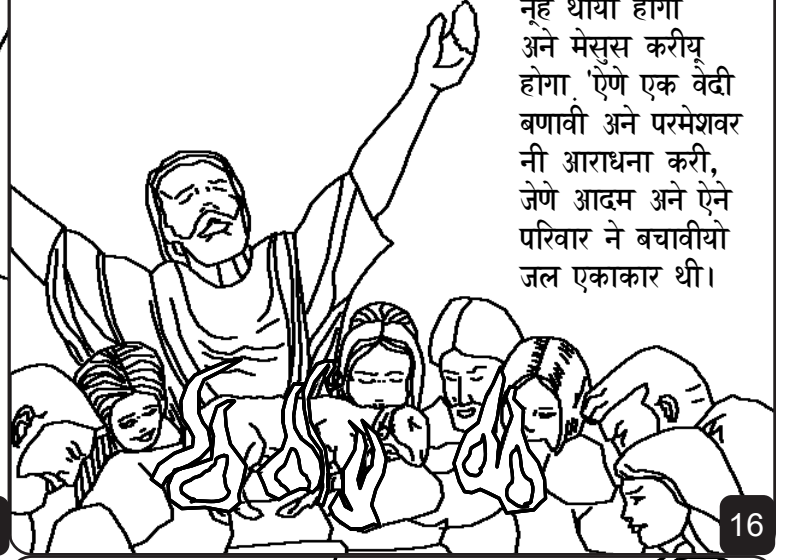 नूह थाया होगा
अने मेसुस करीयू
होगा. 'ऐणे एक वेदी
बणावी अने परमेशवर
नी आराधना करी,
जेणे आदम अने ऐने
परिवार ने बचावीयो
जल एकाकार थी।
16